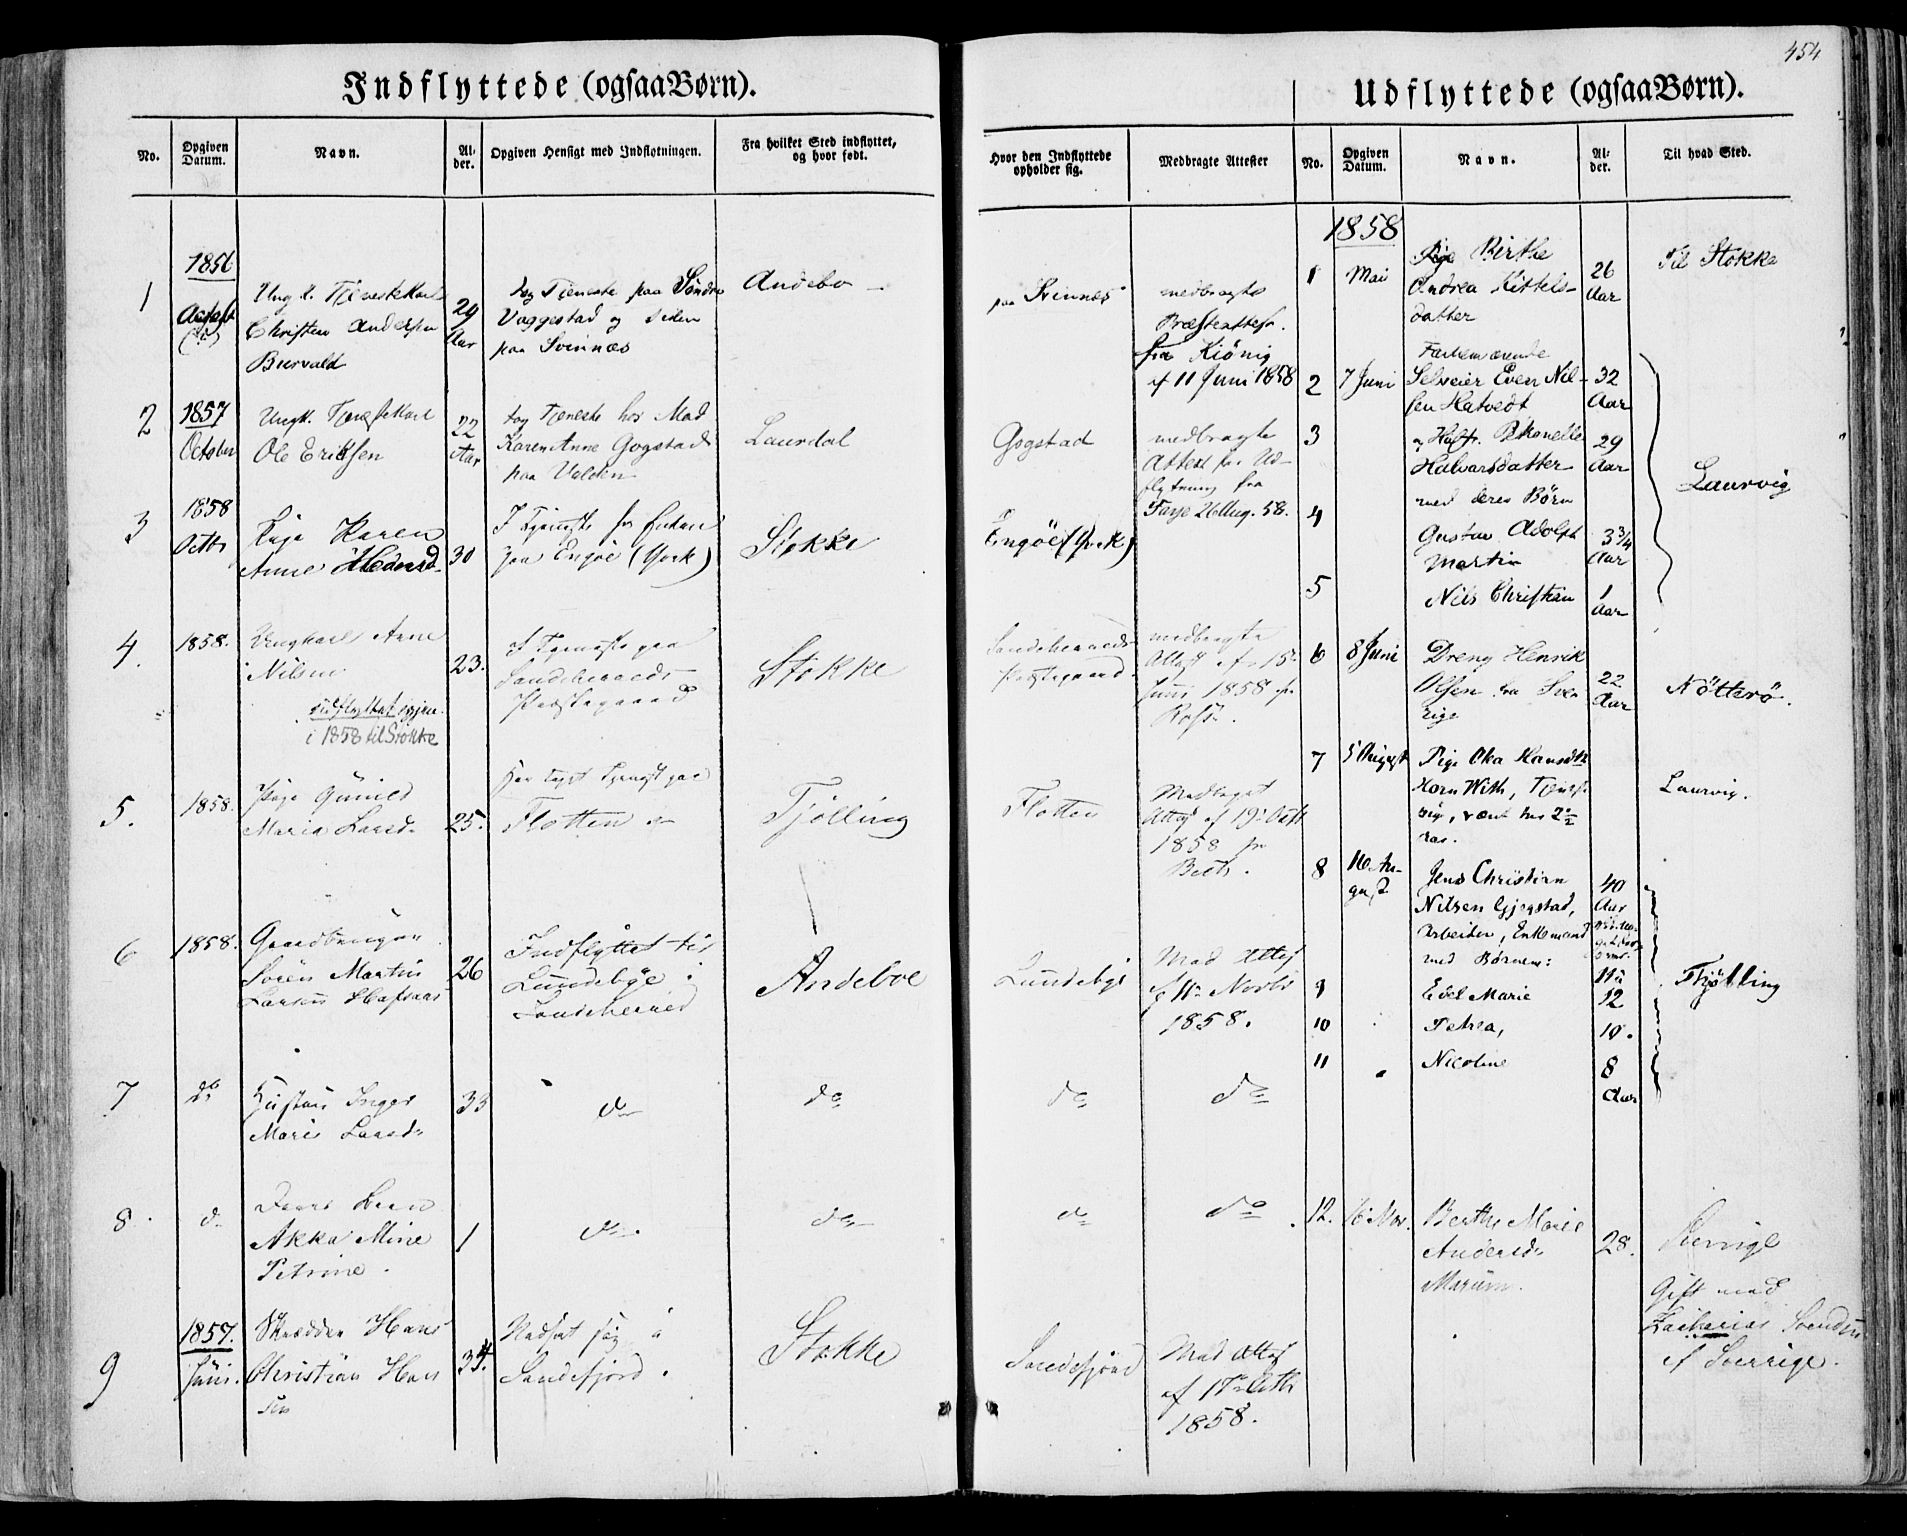 454
Indflyttede (ogsaa Børn).
No.
Opgiven Datum.
Navn.
Alder.
Opgiven Hensigt med Indflytningen.
Fra hvilket Sted indflyttet, og hvor født.
Hvor den Indflyttede opholder sig.
Medbragte Attester
1
1856
Ungk. Tjenestekarl
Christen Andersen
29
Aar
tog Tjeneste paa Söndre
Vaggestad og siden
paa Svinnæs
Andebo
paa Svinnæs
medbragte
Præsteattest
fra Kiönig
af 11 Juni 1858
2
1857
October
Ungk. Tjenestekarl
Ole Eriksen
22
Aar
tog Tjeneste hos Mad
Karen Anne Gogstad
paa
Laurdal
Gogstad
medbragte
Attest for Ud-
flytning fra
26 Aug. 58.
3
1858
Octbr
Pige Karen
Anne
30
I Tjeneste
paa Engöe (York)
Stokke
Engöe (York)
4.
1858.
Ungkarl Arne
Nilsen
udflyttet igjen
i 1858 til Stokke
23.
I Tjeneste paa
Sandeherreds
Præstegaard
Stokke
Sandeherreds
Præstegaard.
medbragte
Attest af 15de
Juni 1858 fr
5.
1858.
Pige Gunild
Maria Larsd.
25.
Har tagt Tjeneste paa
Flotten
Tjölling
Flotten
Medbragt
Attest af 19de Octb
1858 fr
6
1858.
Gaardbruger
Sören Martin
Larsen
26
Indflyttet til
Lundebye i
Sandeherred
Andeboe
Lundebye
Med Attest
af 11te Novbr
1858.
7
do
Hustru Inger
Marie Larsd.
33
do
do
do
do
8.
do
Deres Barn
Akka Mine
Petrine.
1
do.
do
do
do
9
1857.
Juni.
Skrædder Hans
Christian Han
sen
34.
Nedsat sig i
Sandefjord.
Stokke
Sandefjord
Med Attest
af 17de Octb
1858.
Udflyttede (ogsaa Børn).
No.
Opgiven Datum.
Navn.
Alder.
Til hvad Sted.
1858
1
Mai
Pige Birthe
Andrea Kittels-
datter
26
Aar
Til Stokke
2
7 Juni
Forhenværende
Selveier Even Nil-
sen Hatvedt
32
Aar
3
og Hustr.
Halvarsdatter
29
Aar
Laurvig
med deres Børn
4
Gustav Adolph
Martin
3 3/4
Aar
5
Nils Christian
1
Aar
6
8 Juni
Dreng Henrik
Olsen fra Sve
rige
22
Aar
Nötterö.
7
5 August
Pige Oka Hansdtr
Horn With,
Laurvig.
8
16 Au-
gust
Jens Christian
Nilsen Gjegstad,
Arbeider, Enkemand
med Börnene:
40
Aar
Thjölling
9
Edel Marie
12
10
Petrea,
10.
11
Nicoline
8
Aar
12.
16 Nov.
Berthe Marie
Andersd.
28.
Sverrige
Gift med
Zacharias Svendsen
af Sverrige.